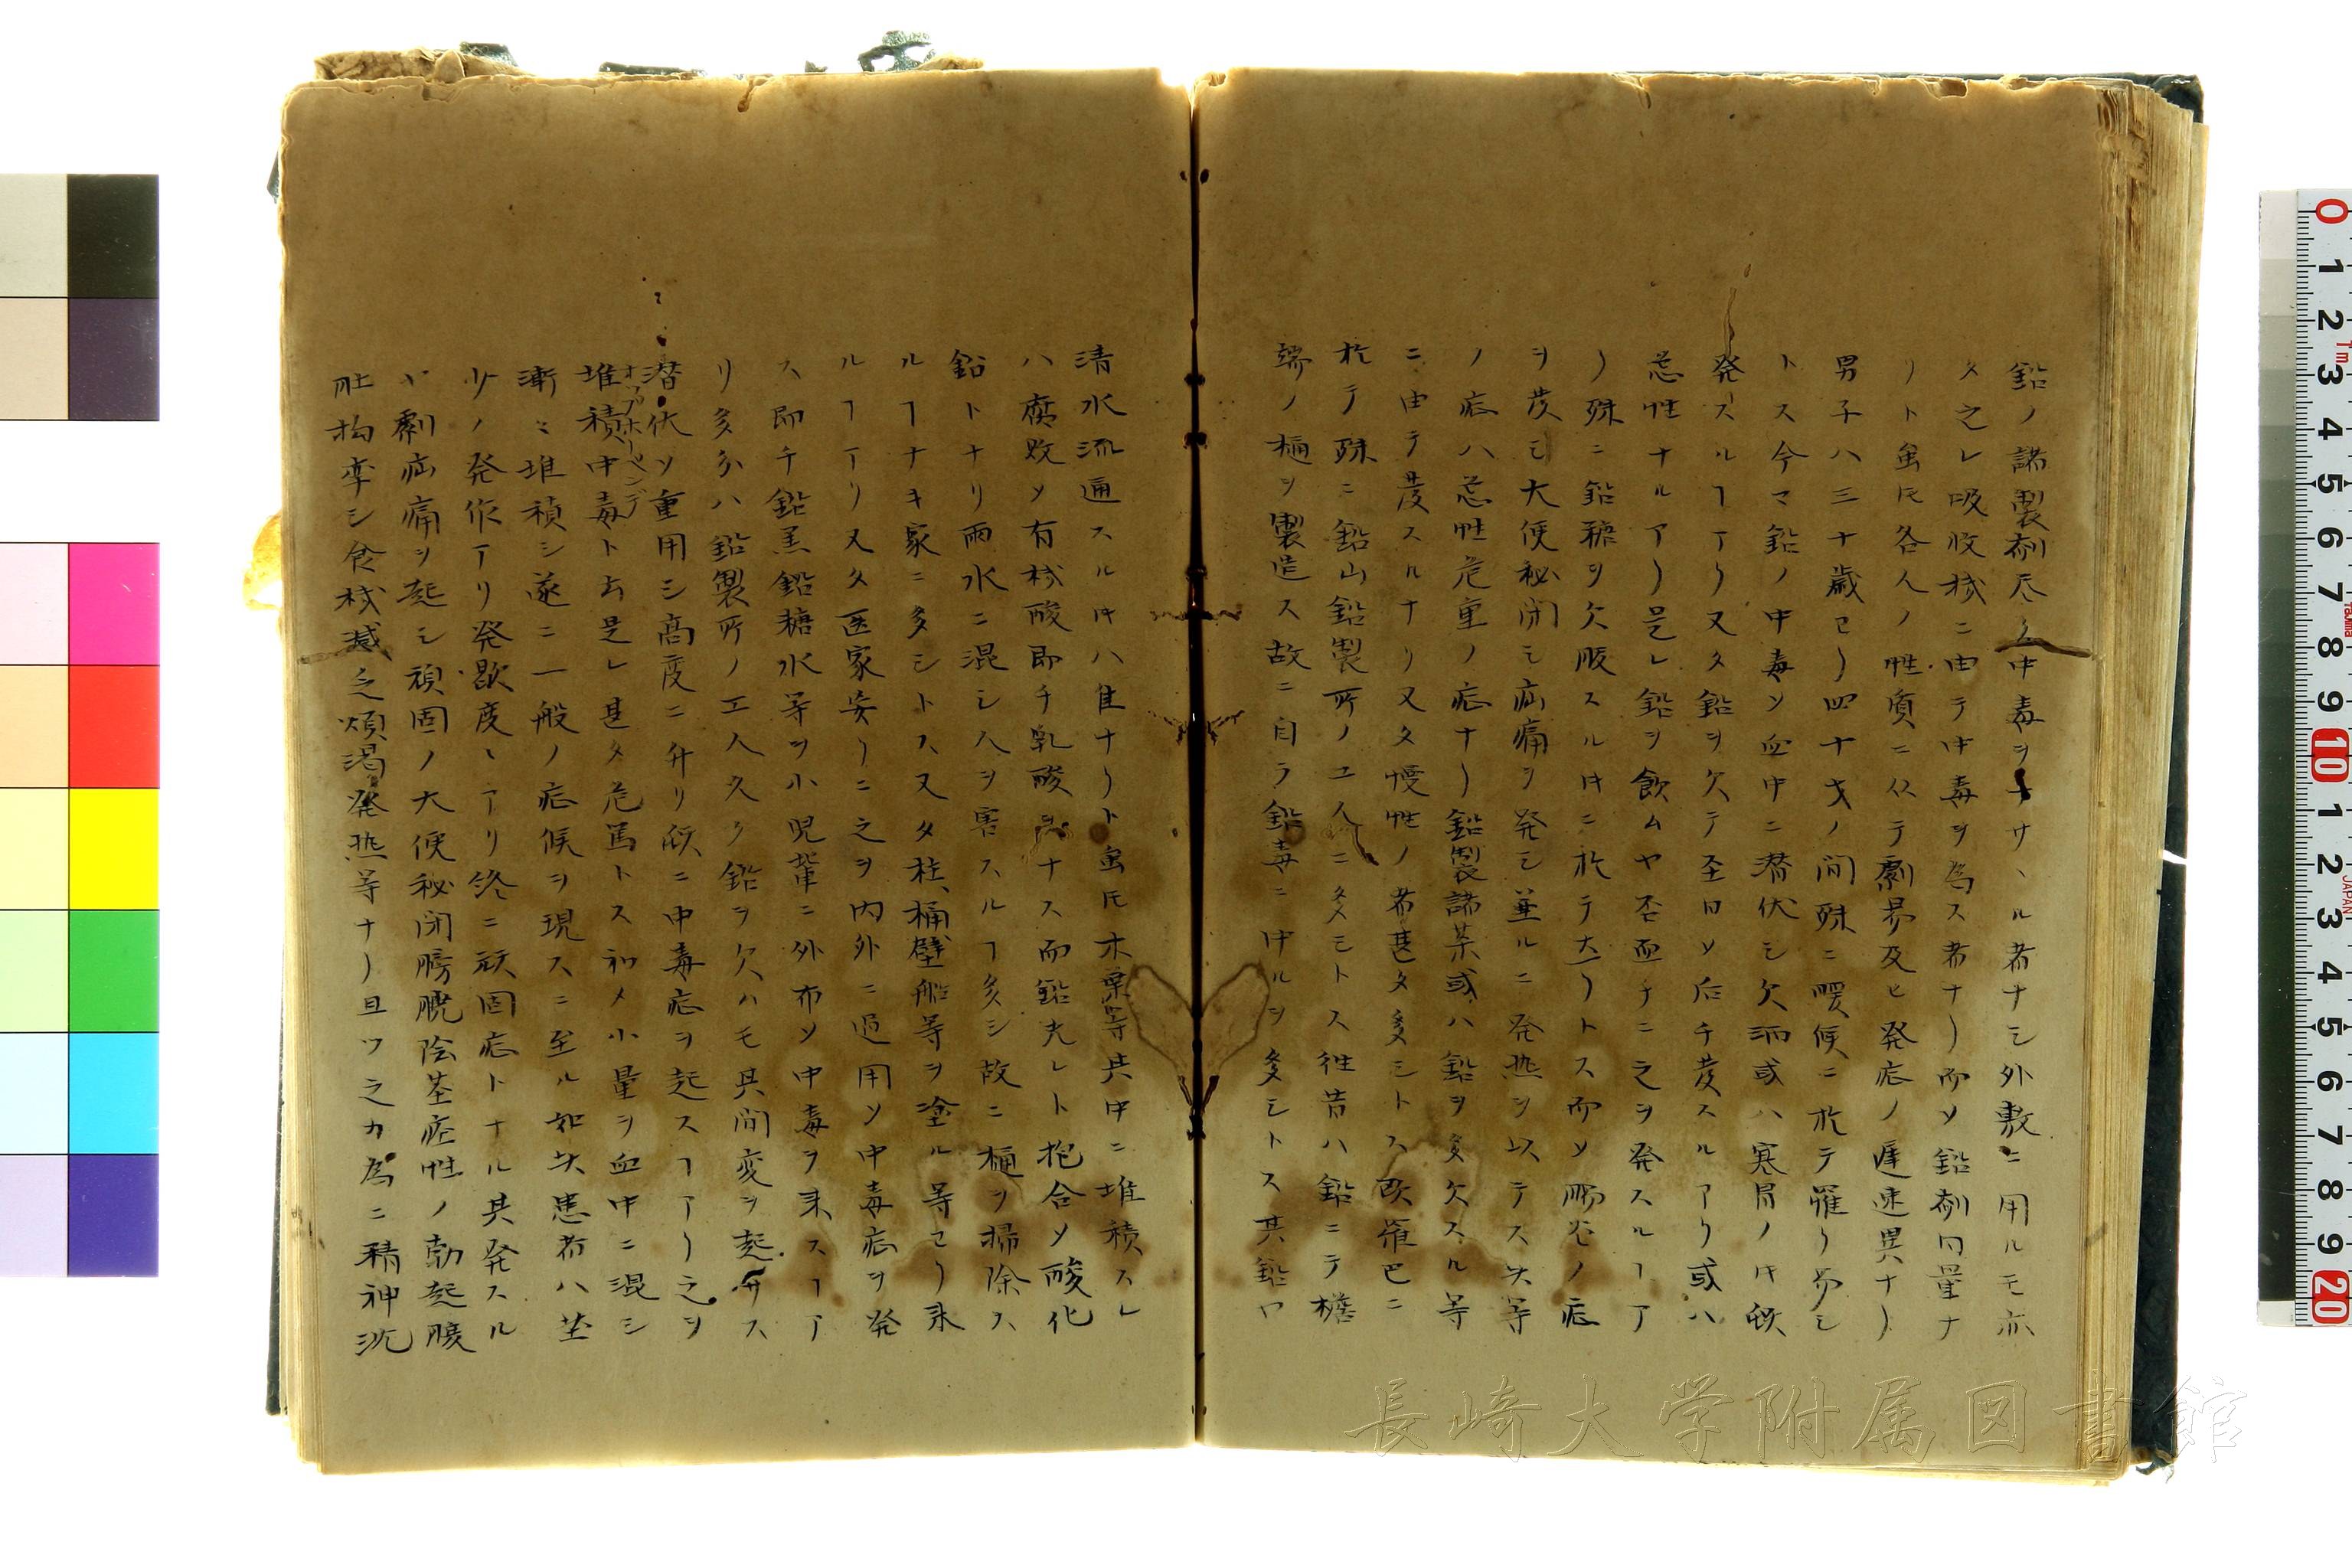 鉛ノ諸製剤尽ク中毒ヲナサヽル者ナシ外敷ニ用ルモ亦
タ之レ吸收機ニ由テ中毒ヲ為ス者ナリ而ソ鉛剤内量ナ
リト虽𪜈各人ノ性質ニ仍テ劇易及ヒ発症ノ遅速異ナリ
男子ハ三十歳ヨリ四十才ノ間殊ニ暖候ニ於テ罹リ易シ
トス今マ鉛ノ中毒ソ血中ニ潜伏シ欠洒或ハ寒冒ノ𪜈
発スルヿアリ又タ鉛ヲ欠テ至日ソ后チ発スルアリ或ハ
忌性ナルアリ是レ鉛ヲ飲ムヤ否直チニ之ヲ発スルヿア
リ殊ニ鉛糖ヲ欠服スル𪜈ニ於テ大リトス而ソ腸炎ノ症
ヲ発シ大便秘閉シ疝痛ヲ発シ並ルニ発熱ヲ以テス失等
ノ症ハ忌性危重ノ症ナリ鉛製諸茶或ハ鉛ヲ多欠スル等
ニ由テ発スルナリ又タ慢性ノ者甚タ多シトス欧羅巴ニ
於テ殊ニ鉛山鉛製所ノ工人ニ多シトス往昔ハ鉛ニテ檐
端ノ樋ヲ製造ス故ニ自ラ鉛毒ニ中ルヲ多シトス其鉛ヤ
清水流通スル𪜈ハ佳ナリト虽𪜈木葉等其中ニ堆積スレ
ハ腐敗ソ有機酸即チ乳酸ヲナス而鉛夫レト抱合ソ酸化
鉛トナリ雨水ニ混シ人ヲ害スルヿ多シ故ニ樋ヲ掃除ス
ルヿナキ家ニ多シトス又タ柱、桶壁船等ヲ塗ル等ヨリ来
ルヿアリ又タ医家妄リニ之ヲ内外ニ過用ソ中毒症ヲ発
ス即チ鉛羔鉛糖水等ヲ小児輩ニ外布ソ中毒ヲ来スヿア
リ多分ハ鉛製所ノ工人久ク鉛ヲ欠ハモ其間変ヲ起サス
潜伏ソ重用シ高度ニ升リ𪜈ニ中毒症ヲ起スヿアリ之ヲ
堆積中毒ト云是レ甚タ危篤トス初メ小量ヲ血中ニ混シ
漸々堆積シ遂ニ一般ノ症候ヲ現スニ至ル如失患者ハ茎
少ノ発作アリ発歇度々アリ終ニ頑固症トナル其発スル
ヤ劇疝痛ヲ起シ頑固ノ大便秘閉膀胱陰茎痙性ノ勃起腹
肚拘挛シ食機減乏煩渇発熱等ナリ且ツ之カ為ニ精神沈
長崎大学附属図書館